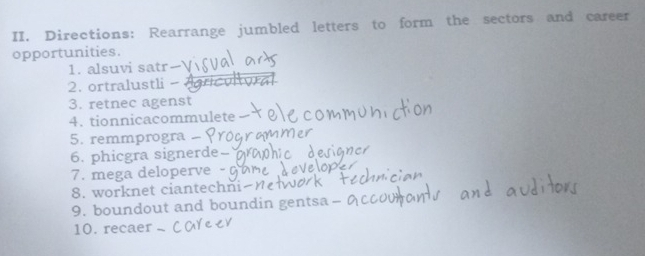 II. Directions: Rearrange jumbled letters to form the sectors and career
opportunities.
1. alsuvi satr - visual arts
2. ortralustli - Agricultural
3. retnec agenst
4. tionnicacommulete - telecommuniction
5. remmprogra - Programmer
6. phicgra signerde - graphic designer
7. mega deloperve - game developer
8. worknet ciantechni - network technician
9. boundout and boundin gentsa - accountants and auditors
10. recaer - career